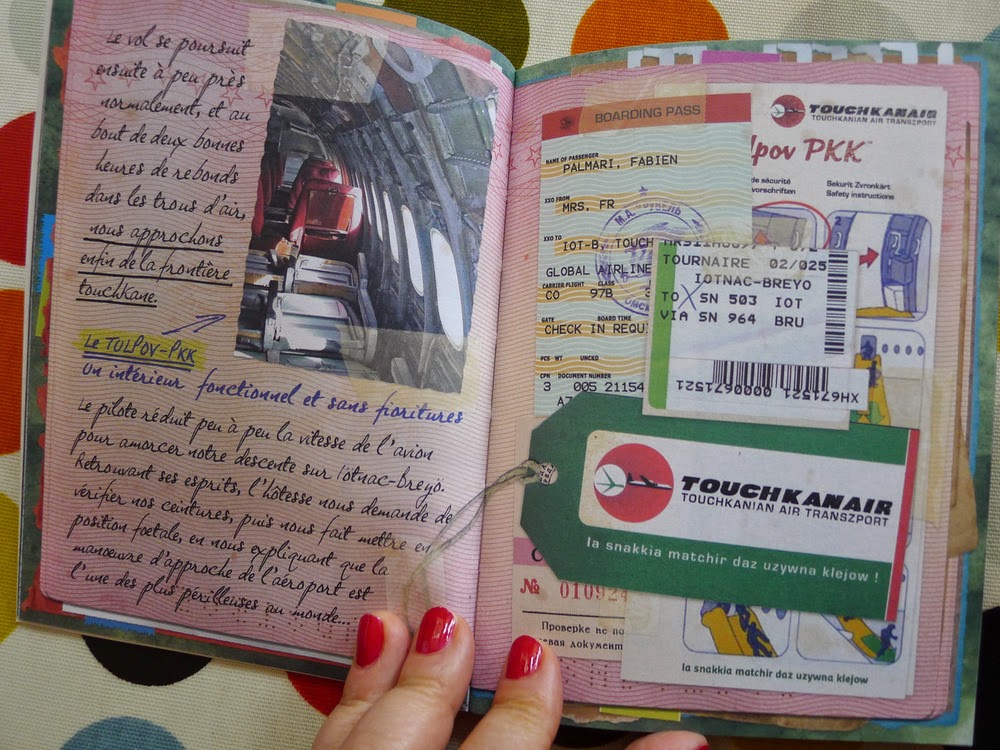 Le vol se poursuit
ensuite à peu près
normalement, et au
bout de deux bonnes
heures de rebonds
dans les trous d'air,
nous approchons
enfin de la frontière
touchkane.
Le TULPOV-PKK
Un intérieur fonctionnel et sans fioritures
Le pilote réduit peu à peu la vitesse de l'avion
pour amorcer notre descente sur Iötnac-Breyö.
Retrouvant ses esprits, l'hôtesse nous demande de
vérifier nos ceintures, puis nous fait mettre en
position foetale, en nous expliquant que la
manœuvre d'approche de l'aéroport est
l'une des plus périlleuses au monde...
BOARDING PASS
NAME OF PASSENGER
PALMARI, FABIEN
XXO FROM
MRS, FR
XXO TO
IOT-B, TOUCH
GLOBAL AIRLINE
CARRIER FLIGHT CLASS
CO 97B
GATE BOARD TIME
CHECK IN REQU
PCS WT UNCKD
CPN DOCUMENT NUMBER
3 005 21154
TOUCHKANAIR
TOUCHKANIAN AIR TRANSZPORT
lpov PKK™
de sécurité
vorschriften
Sekurit Zvronkärt
Safety instructions
2
TOURNAIRE 02/025
IOTNAC-BREYO
TO SN 503 IOT
VIA SN 964 BRU
XH671521 0000671521
TOUCHKANAIR
TOUCHKANIAN AIR TRANSZPORT
la snakkia matchir daz uzywna klejow !
№ 010924
Проверке не по
евая документ
la snakkia matchir daz uzywna klejow